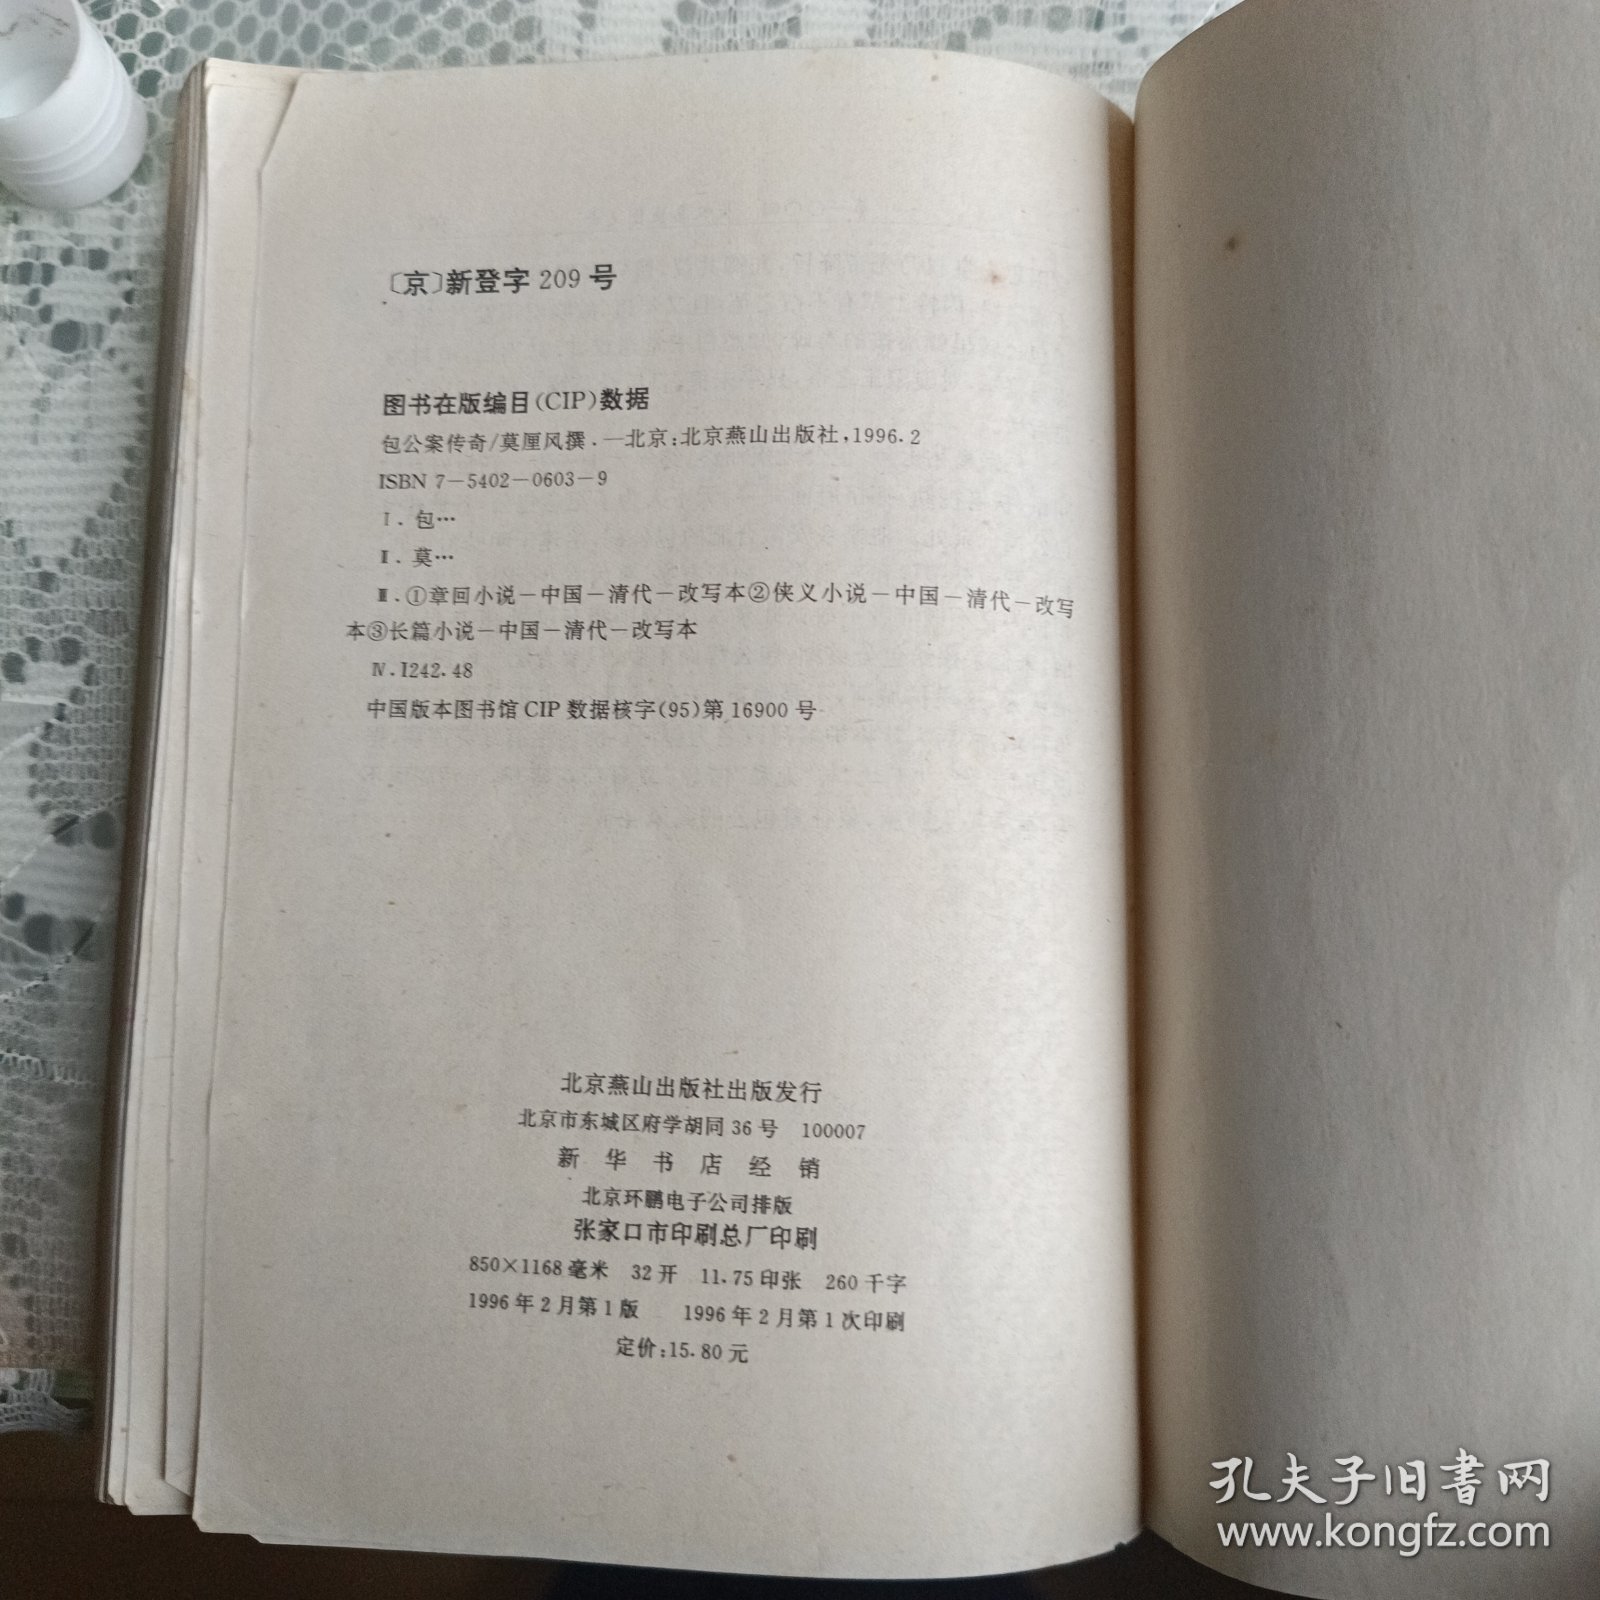 〔京〕新登字 209 号
图书在版编目(CIP)数据
包公案传奇/莫厘风撰.—北京:北京燕山出版社,1996.2
ISBN 7-5402-0603-9
Ⅰ.包…
Ⅱ.莫…
Ⅲ.①章回小说-中国-清代-改写本②侠义小说-中国-清代-改写
本③长篇小说-中国-清代-改写本
Ⅳ.I242.48
中国版本图书馆 CIP 数据核字(95)第 16900 号
北京燕山出版社出版发行
北京市东城区府学胡同 36 号 100007
新华书店经销
北京环鹏电子公司排版
张家口市印刷总厂印刷
850×1168 毫米 32 开 11.75 印张 260 千字
1996 年 2 月第 1 版 1996 年 2 月第 1 次印刷
定价:15.80 元
孔夫子旧书网
www.kongfz.com